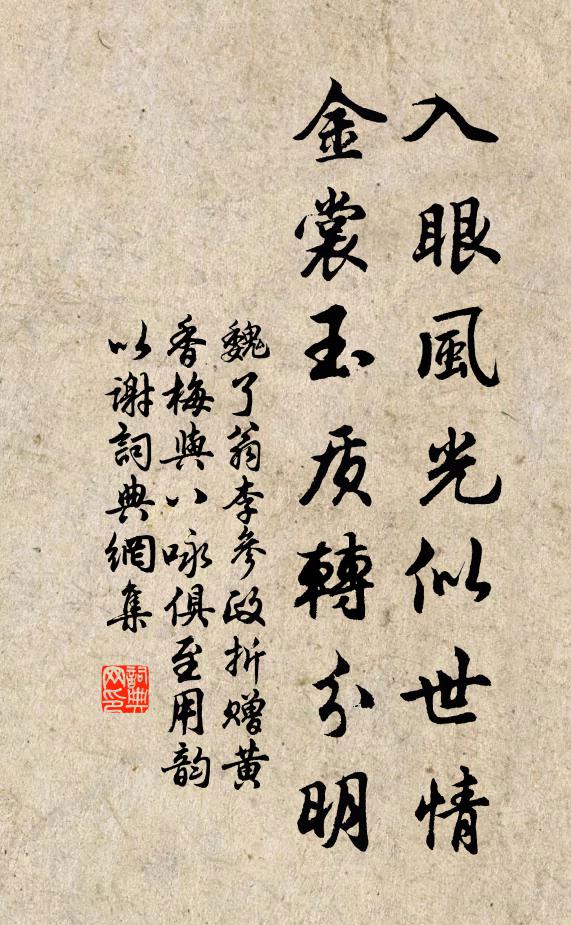 入眼風光似世情
金裳玉质轉分明
魏了翁李參政折赠黄
香梅與八咏俱至用韵
以谢詞典網集
詞典网印